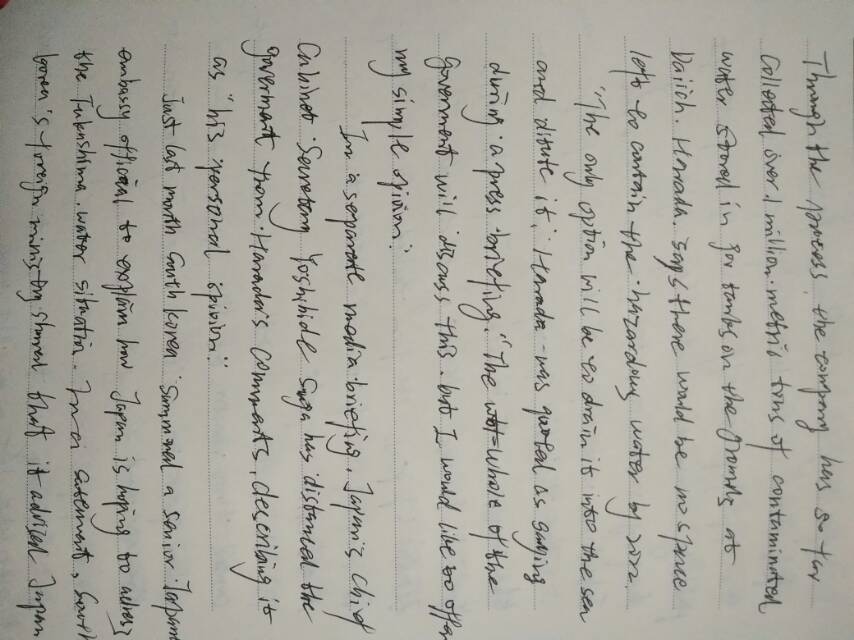 Through the process, the company has so far
Collected over 1 million metric tons of contaminated
water stored in 900 tanks on the grounds at
Daiich. Harada says there would be no space
left to contain the hazardous water by 2022.
"The only option will be to drain it into the sea
and dilute it," Harada was quoted as saying
during a press briefing. "The whole of the
Goverment will discuss this. but I would like to offer
my simple opinion."
In a separate media briefing, Japan's Chief
Cabinet Secretary Yoshihide Suga has distanced the
goverment from Harada's comments, describing it
as "his personal opinion."
Just last month South Korea summoned a senior Japane
embassy official to explain how Japan is hoping to address
the Fukushima water situation. In a satement, South
Korea's foreign ministry shared that it advised Japan